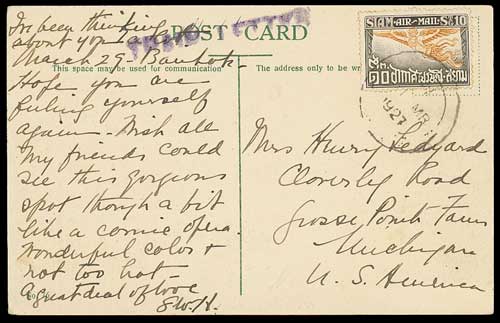 I've been thinking
about you
March 29 - Bankok -
Hope you are
feeling yourself
again - Wish all
my friends could
see this gorgeous
spot though a bit
like a comic opera.
Wonderful color &
not too hot -
a great deal of love
POST CARD
This space may be used for communication
The address only to be
SIAM-AIR-MAIL-S. 10
MR
1927
Mrs Henry Ledyard
Cloverly Road
Grosse Pointe Farms
Michigan
U. S. America